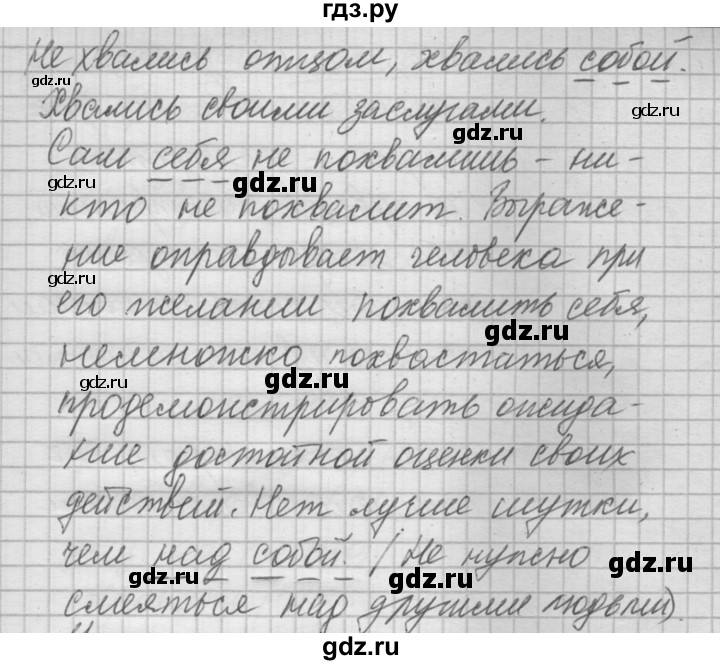 гдз.ру
Не хвались отцом, хвались собой.
gdz.ru
gdz.ru
Хвались своими заслугами.
gdz.ru
Сам себя не похвалишь - ни-
gdz.ru
gdz.ru
кто не похвалит. Выраже-
ние оправдывает человека при
gdz.ru
его желании похвалить себя,
gdz.ru
немножко похвастаться,
gdz.ru
gdz.ru
продемонстрировать ожида-
ние достойной оценки своих
gdz.ru
действий. Нет лучше шутки,
чем над собой. (Не нужно
gdz.ru
gdz.ru
gdz.ru
смеяться над другими людьми).
gdz.ru